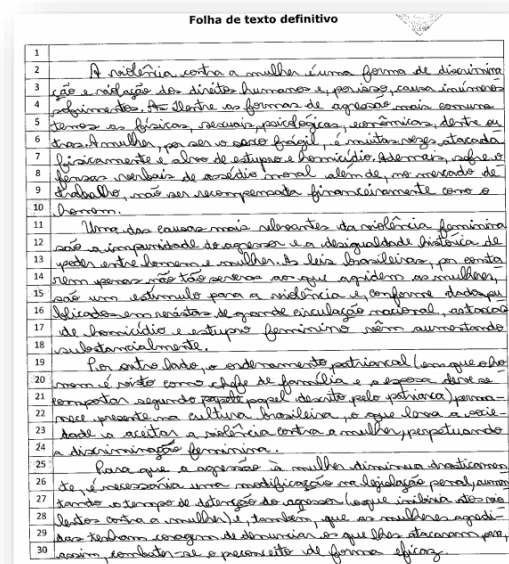 Folha de texto definitivo
1
2 A violência contra a mulher é uma forma de discrimina
3 ção e violação dos direitos humanos e, por isso, causa inúmeros
4 sofrimentos. Dentre as formas de agressão mais comuns
5 temos as físicas, sexuais, psicológicas, econômicas, dentre ou
6 tras. A mulher, por ser o sexo frágil, é muitas vezes atacada
7 fisicamente e alvo de estupro e homicídio. Ademais, sofre o
8 fensas verbais de assédio moral além de, no mercado de
9 trabalho, não ser recompensada financeiramente como o
10 homem.
11 Uma das causas mais relevantes da violência feminina
12 são a impunidade do agressor e a desigualdade histórica de
13 poder entre homem e mulher. As leis brasileiras, por conta
14 rem penas não tão severas ao que agridem as mulheres,
15 são um estímulo para a violência e, conforme dados pu
16 blicados em revistas de grande circulação nacional, as taxas
17 de homicídio e estupro feminino vêm aumentando
18 substancialmente.
19 Por outro lado, o ordenamento patriarcal (em que o ho
20 mem é visto como chefe de família e a esposa deve se
21 comportar segundo papel descrito pelo patriarca) perma-
22 nece presente na cultura brasileira, o que leva a socie-
23 dade a aceitar a violência contra a mulher, perpetuando
24 a discriminação feminina.
25 Para que a agressão à mulher diminua drasticamen
26 te, é necessária uma modificação na legislação penal, aumen
27 tando o tempo de detenção do agressor (o que inibiria atos vio
28 lentos contra a mulher) e, também, que as mulheres agredi-
29 das tenham coragem de denunciar os que lhes atacaram para,
30 assim, combater-se o preconceito de forma eficaz.